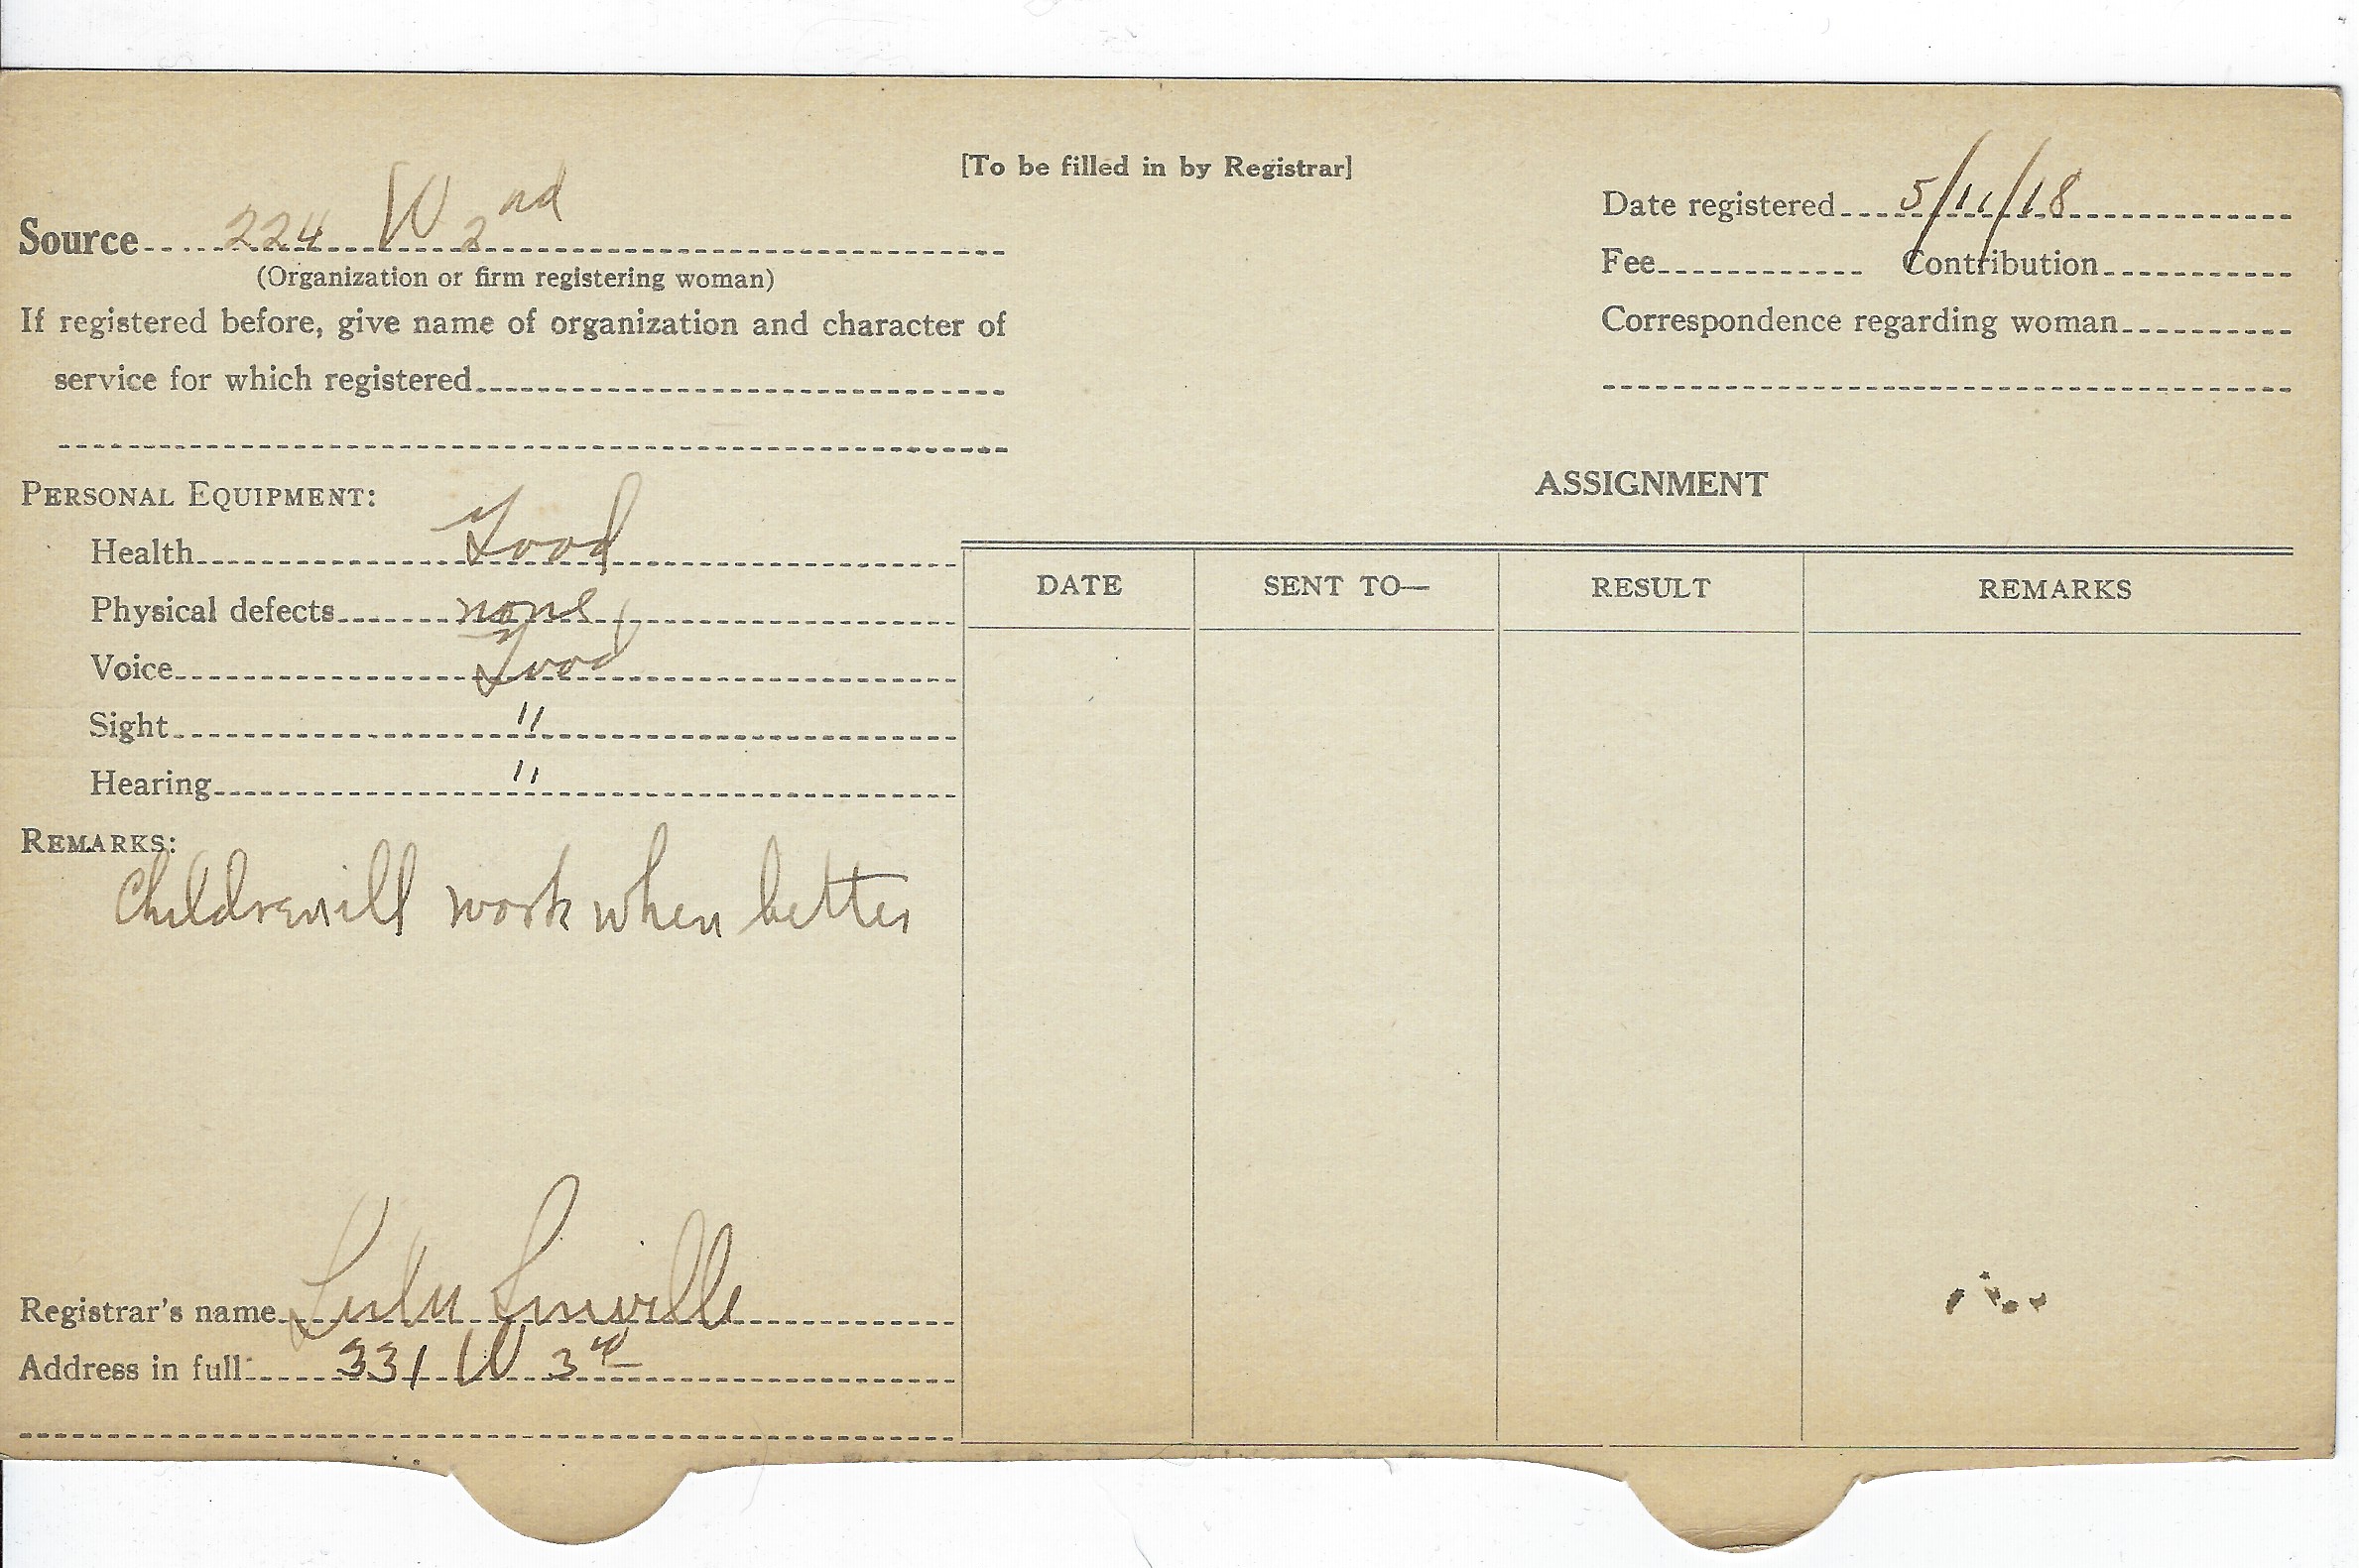 [To be filled in by Registrar]
Source 224 W 2nd
(Organization or firm registering woman)
If registered before, give name of organization and character of
service for which registered
Date registered 5/11/18
Fee Contribution
Correspondence regarding woman
PERSONAL EQUIPMENT:
Health Good
Physical defects none
Voice Good
Sight "
Hearing "
REMARKS:
Children ill work when better
Registrar's name Lulu Linville
Address in full 331 W 3rd
ASSIGNMENT
DATE SENT TO— RESULT REMARKS